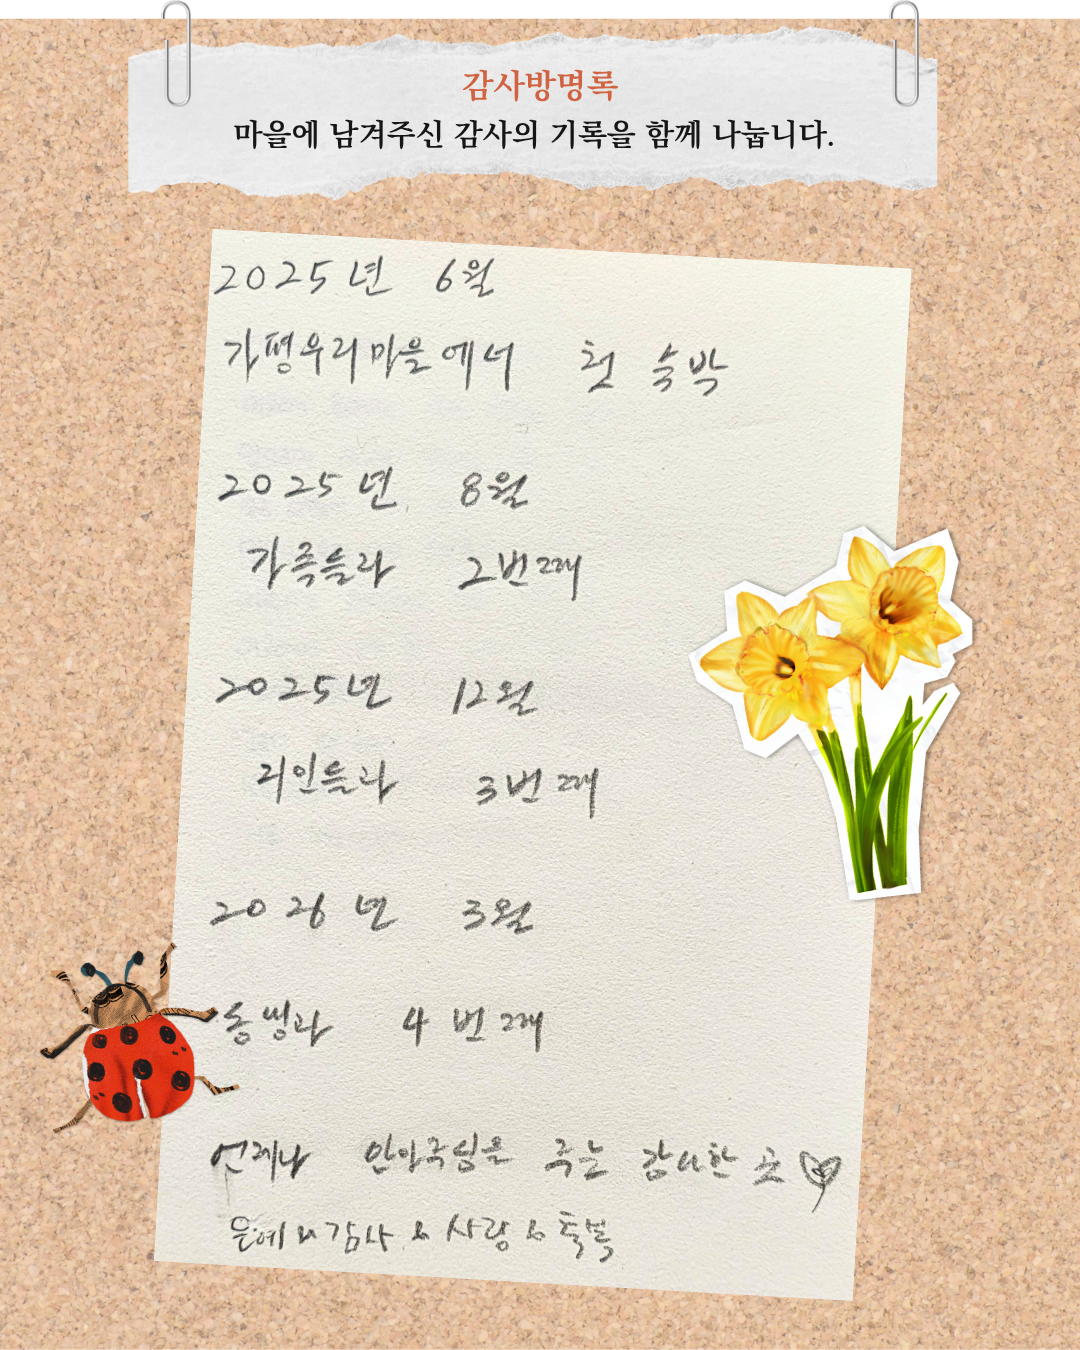 감사방명록
마을에 남겨주신 감사의 기록을 함께 나눕니다.
2025년 6월
가평우리마을에서 첫 숙박
2025년 8월
가족들과 2번째
2025년 12월
지인들과 3번째
2026년 3월
동생과 4번째
언제나 주는 감사한 곳
은혜 & 감사 & 사랑 & 축복